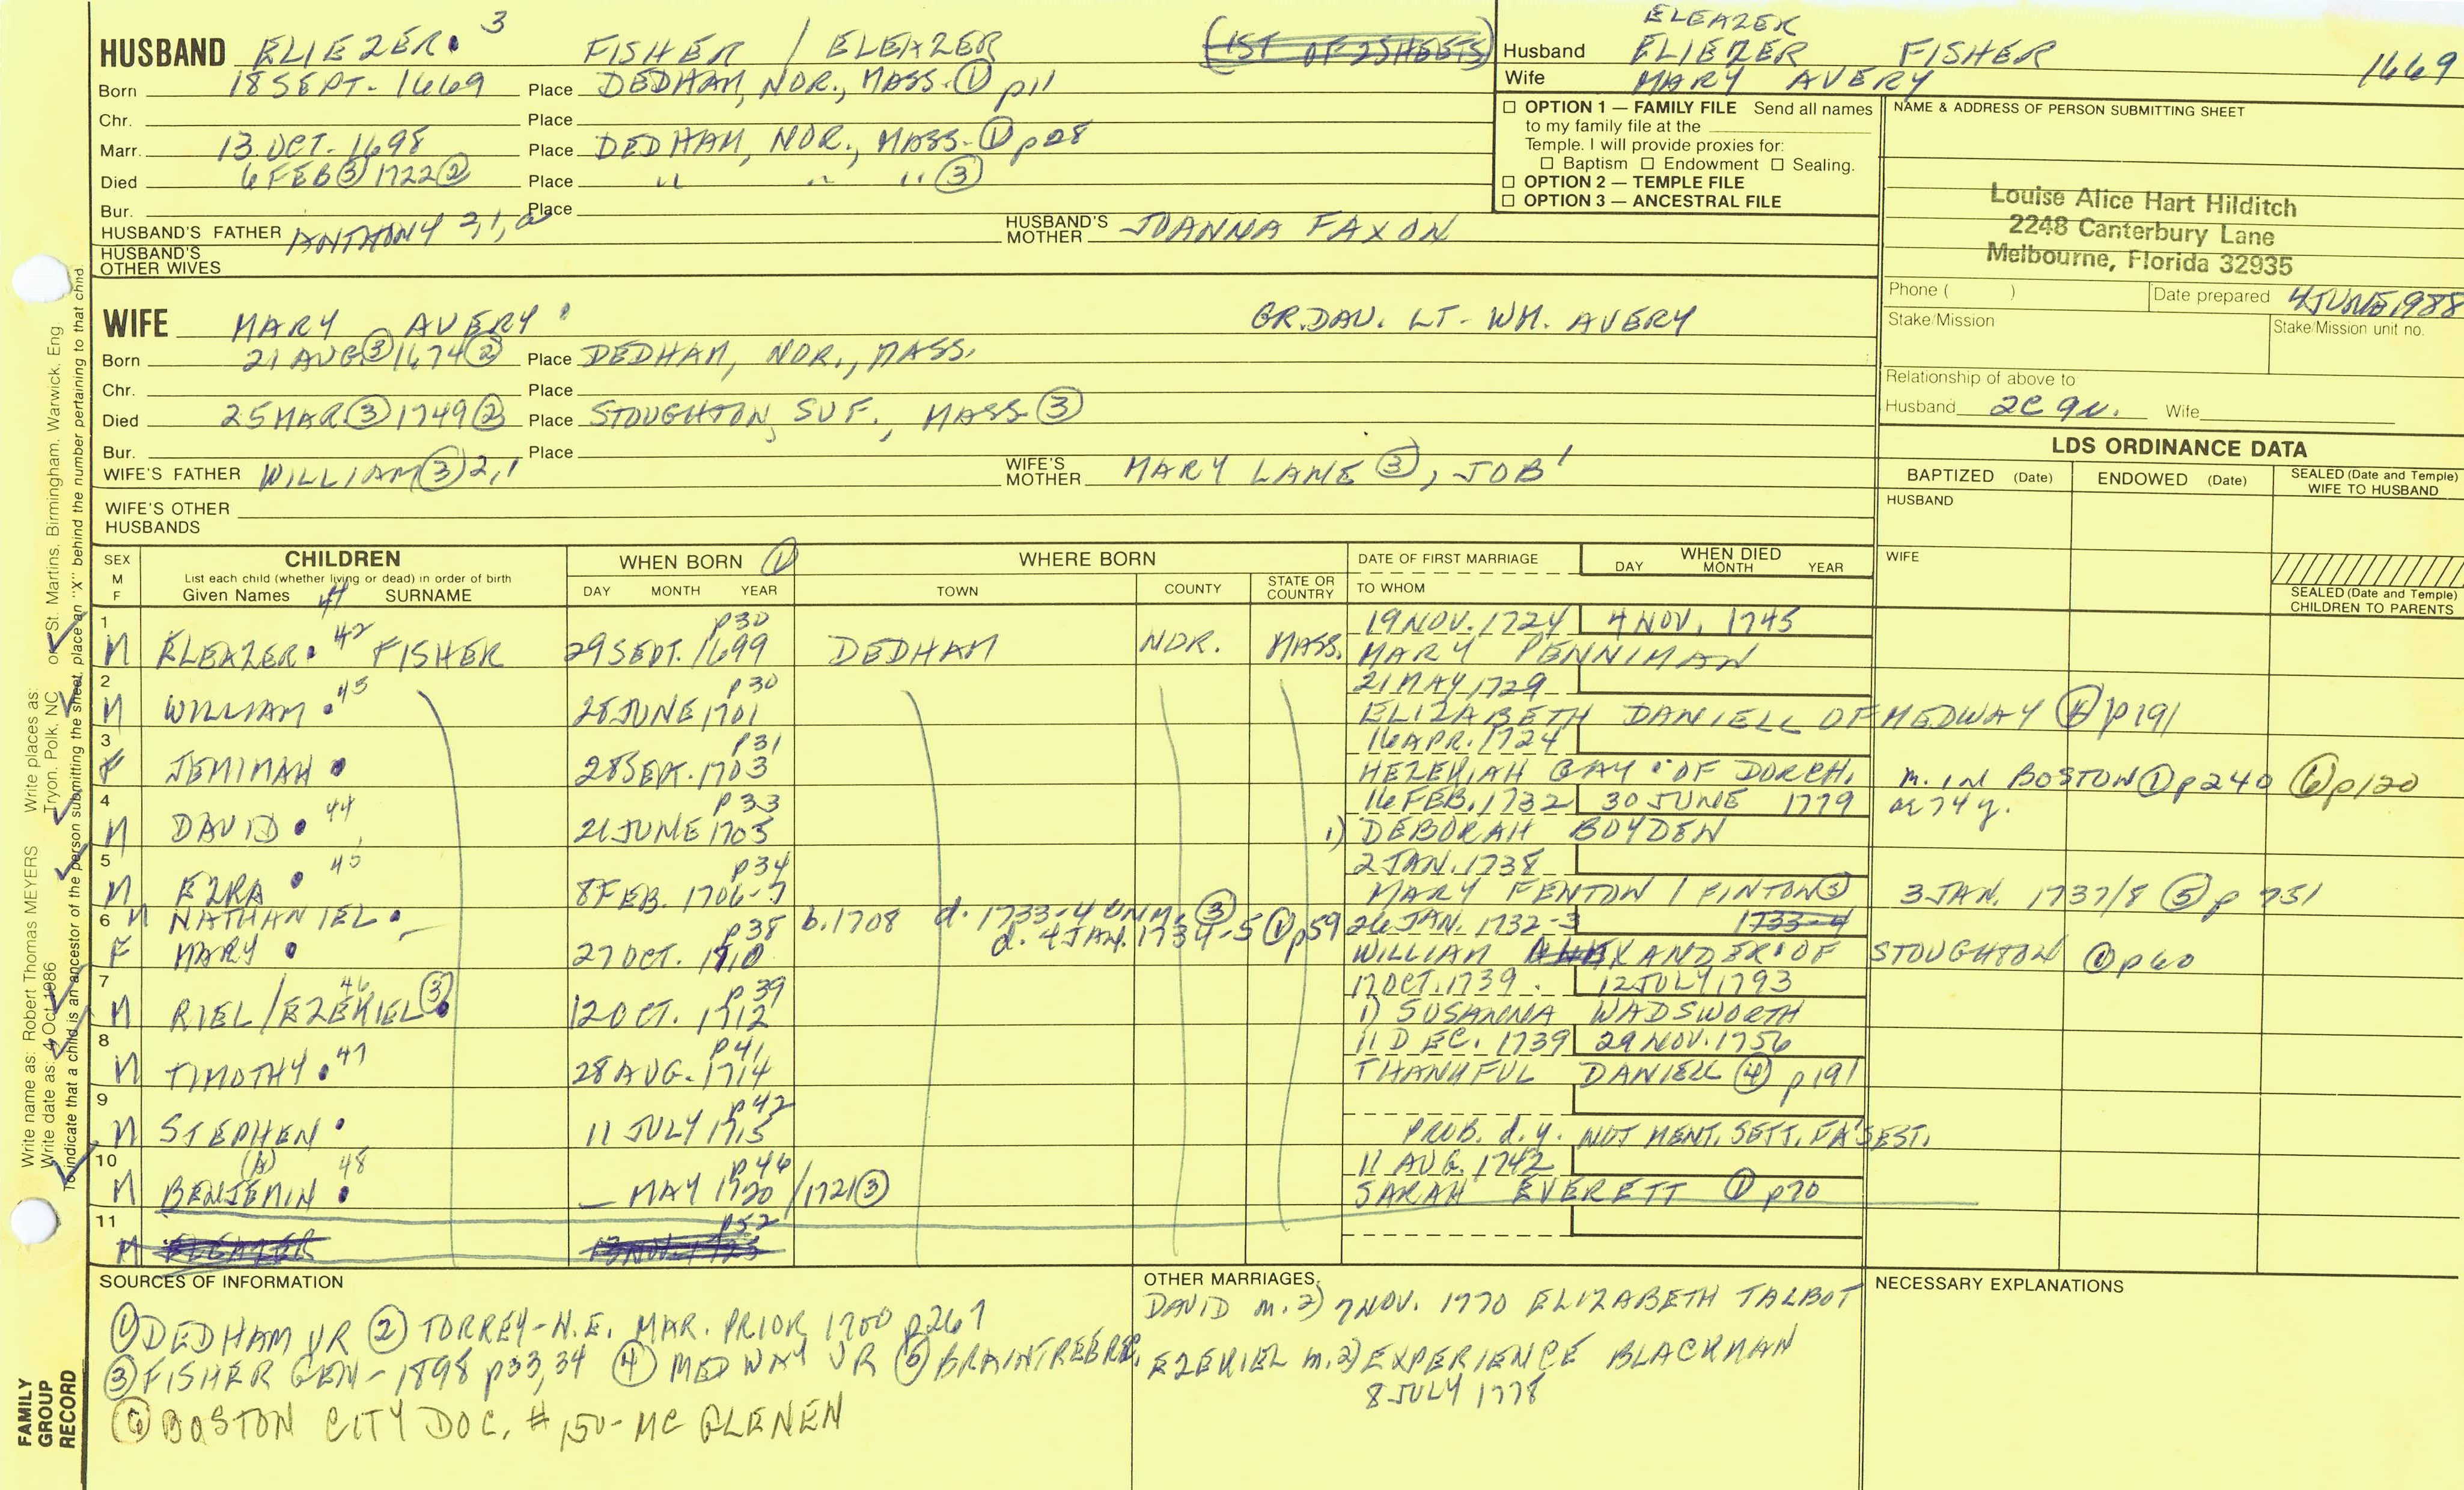 HUSBAND ELIEZER 3 FISHER / ELEAZER (1ST OF 2 SHEETS)
Born 18 SEPT. 1669 Place DEDHAM, NOR., MASS. ① p11
Chr. Place
Marr. 13 OCT. 1698 Place DEDHAM, NOR., MASS. ① p28
Died 6 FEB ③ 1722 ② Place " " " ③
Bur. Place
HUSBAND'S FATHER ANTHONY 2,1,a HUSBAND'S MOTHER JOANNA FAXON
HUSBAND'S OTHER WIVES
ELEAZER
Husband ELIEZER FISHER 1669
Wife MARY AVERY
☐ OPTION 1 — FAMILY FILE Send all names
to my family file at the
Temple. I will provide proxies for:
☐ Baptism ☐ Endowment ☐ Sealing.
☐ OPTION 2 — TEMPLE FILE
☐ OPTION 3 — ANCESTRAL FILE
NAME & ADDRESS OF PERSON SUBMITTING SHEET
Louise Alice Hart Hilditch
2248 Canterbury Lane
Melbourne, Florida 32935
Phone ( ) Date prepared 4 JUNE 1988
Stake/Mission Stake/Mission unit no.
Relationship of above to
Husband 2C 9R. Wife
WIFE MARY AVERY GR.DAU. LT. WM. AVERY
Born 21 AUG ③ 1674 ② Place DEDHAM, NOR., MASS.
Chr. Place
Died 25 MAR. ③ 1749 ② Place STOUGHTON, SUF., MASS ③
Bur. Place
WIFE'S FATHER WILLIAM ③ 2,1 WIFE'S MOTHER MARY LANE ③, JOB 1
WIFE'S OTHER HUSBANDS
LDS ORDINANCE DATA
BAPTIZED (Date) ENDOWED (Date) SEALED (Date and Temple) WIFE TO HUSBAND
HUSBAND
WIFE
SEALED (Date and Temple) CHILDREN TO PARENTS
SEX M F CHILDREN List each child (whether living or dead) in order of birth Given Names SURNAME
WHEN BORN ① DAY MONTH YEAR
WHERE BORN TOWN COUNTY STATE OR COUNTRY
DATE OF FIRST MARRIAGE TO WHOM
WHEN DIED DAY MONTH YEAR
1 p30 19 NOV. 1724 4 NOV. 1745
M ELEAZER 42 FISHER 29 SEPT. 1699 DEDHAM NOR. MASS. MARY PENNIMAN
2 p30 21 MAY 1729
M WILLIAM 43 28 JUNE 1701 ELIZABETH DANIELL OF MEDWAY ④ p191
3 p31 16 APR. 1724
F JEMIMAH 28 SEPT. 1703 HEZEKIAH GAY OF DORCH. m. IN BOSTON ① p240 ⑥ p120
4 p33 16 FEB. 1732 30 JUNE 1779 ae 74 y.
M DAVID 44 21 JUNE 1705 1) DEBORAH BOYDEN
5 p34 2 JAN. 1738
M EZRA 45 8 FEB. 1706-7 MARY FENTON / FINTON ③ 3 JAN. 1737/8 ⑤ p 751
6 M NATHANIEL b. 1708 d. 1733-4 UNM. ③ 26 JAN. 1732-3 1733-4
d. 4 JAN. 1734-5 ① p59
F MARY p38 27 OCT. 1710 WILLIAM ALEXANDER OF STOUGHTON ① p60
7 p39 17 OCT. 1739 12 JULY 1793
M RIEL / EZEKIEL ③ 46 12 OCT. 1712 1) SUSANNA WADSWORTH
8 p41 11 DEC. 1739 29 NOV. 1756
M TIMOTHY 47 28 AUG. 1714 THANKFUL DANIELL ④ p191
9 p42
M STEPHEN 11 JULY 1715 PROB. d.y. NOT MENT. SETT. FA'S EST.
10 (A) p46 11 AUG. 1742
M BENJEMIN 48 — MAY 1720 / 1721 ③ SARAH EVERETT ① p70
11 p52
M ELEAZER 13 NOV. 1723
SOURCES OF INFORMATION
① DEDHAM VR ② TORREY - N.E. MAR. PRIOR 1700 p267
③ FISHER GEN - 1898 p33,34 ④ MEDWAY VR ⑤ BRAINTREE REC.
⑥ BOSTON CITY DOC. # 150 - MC GLENEN
OTHER MARRIAGES
DAVID m. 2) 7 NOV. 1770 ELIZABETH TALBOT
EZEKIEL m. 2) EXPERIENCE BLACKMAN
8 JULY 1778
NECESSARY EXPLANATIONS
Write name as: Robert Thomas MEYERS Write places as: Tryon, Polk, NC or St. Martins, Birmingham, Warwick, Eng.
Write date as: 4 Oct 1986
To indicate that a child is an ancestor of the person submitting the sheet, place an "X" behind the number pertaining to that child.
FAMILY
GROUP
RECORD